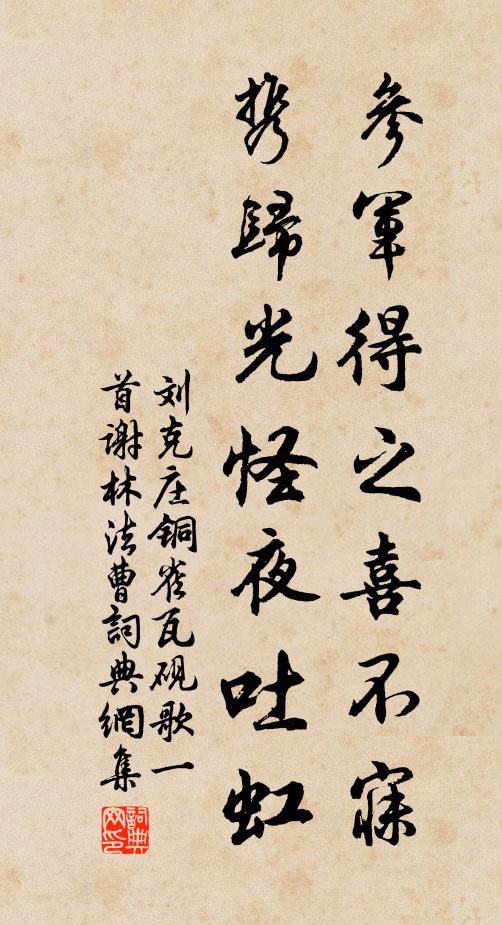 參軍得之喜不寐
携歸光怪夜吐虹
刘克庄铜雀瓦砚歌一
首谢林法曹詞典網集
詞典网印